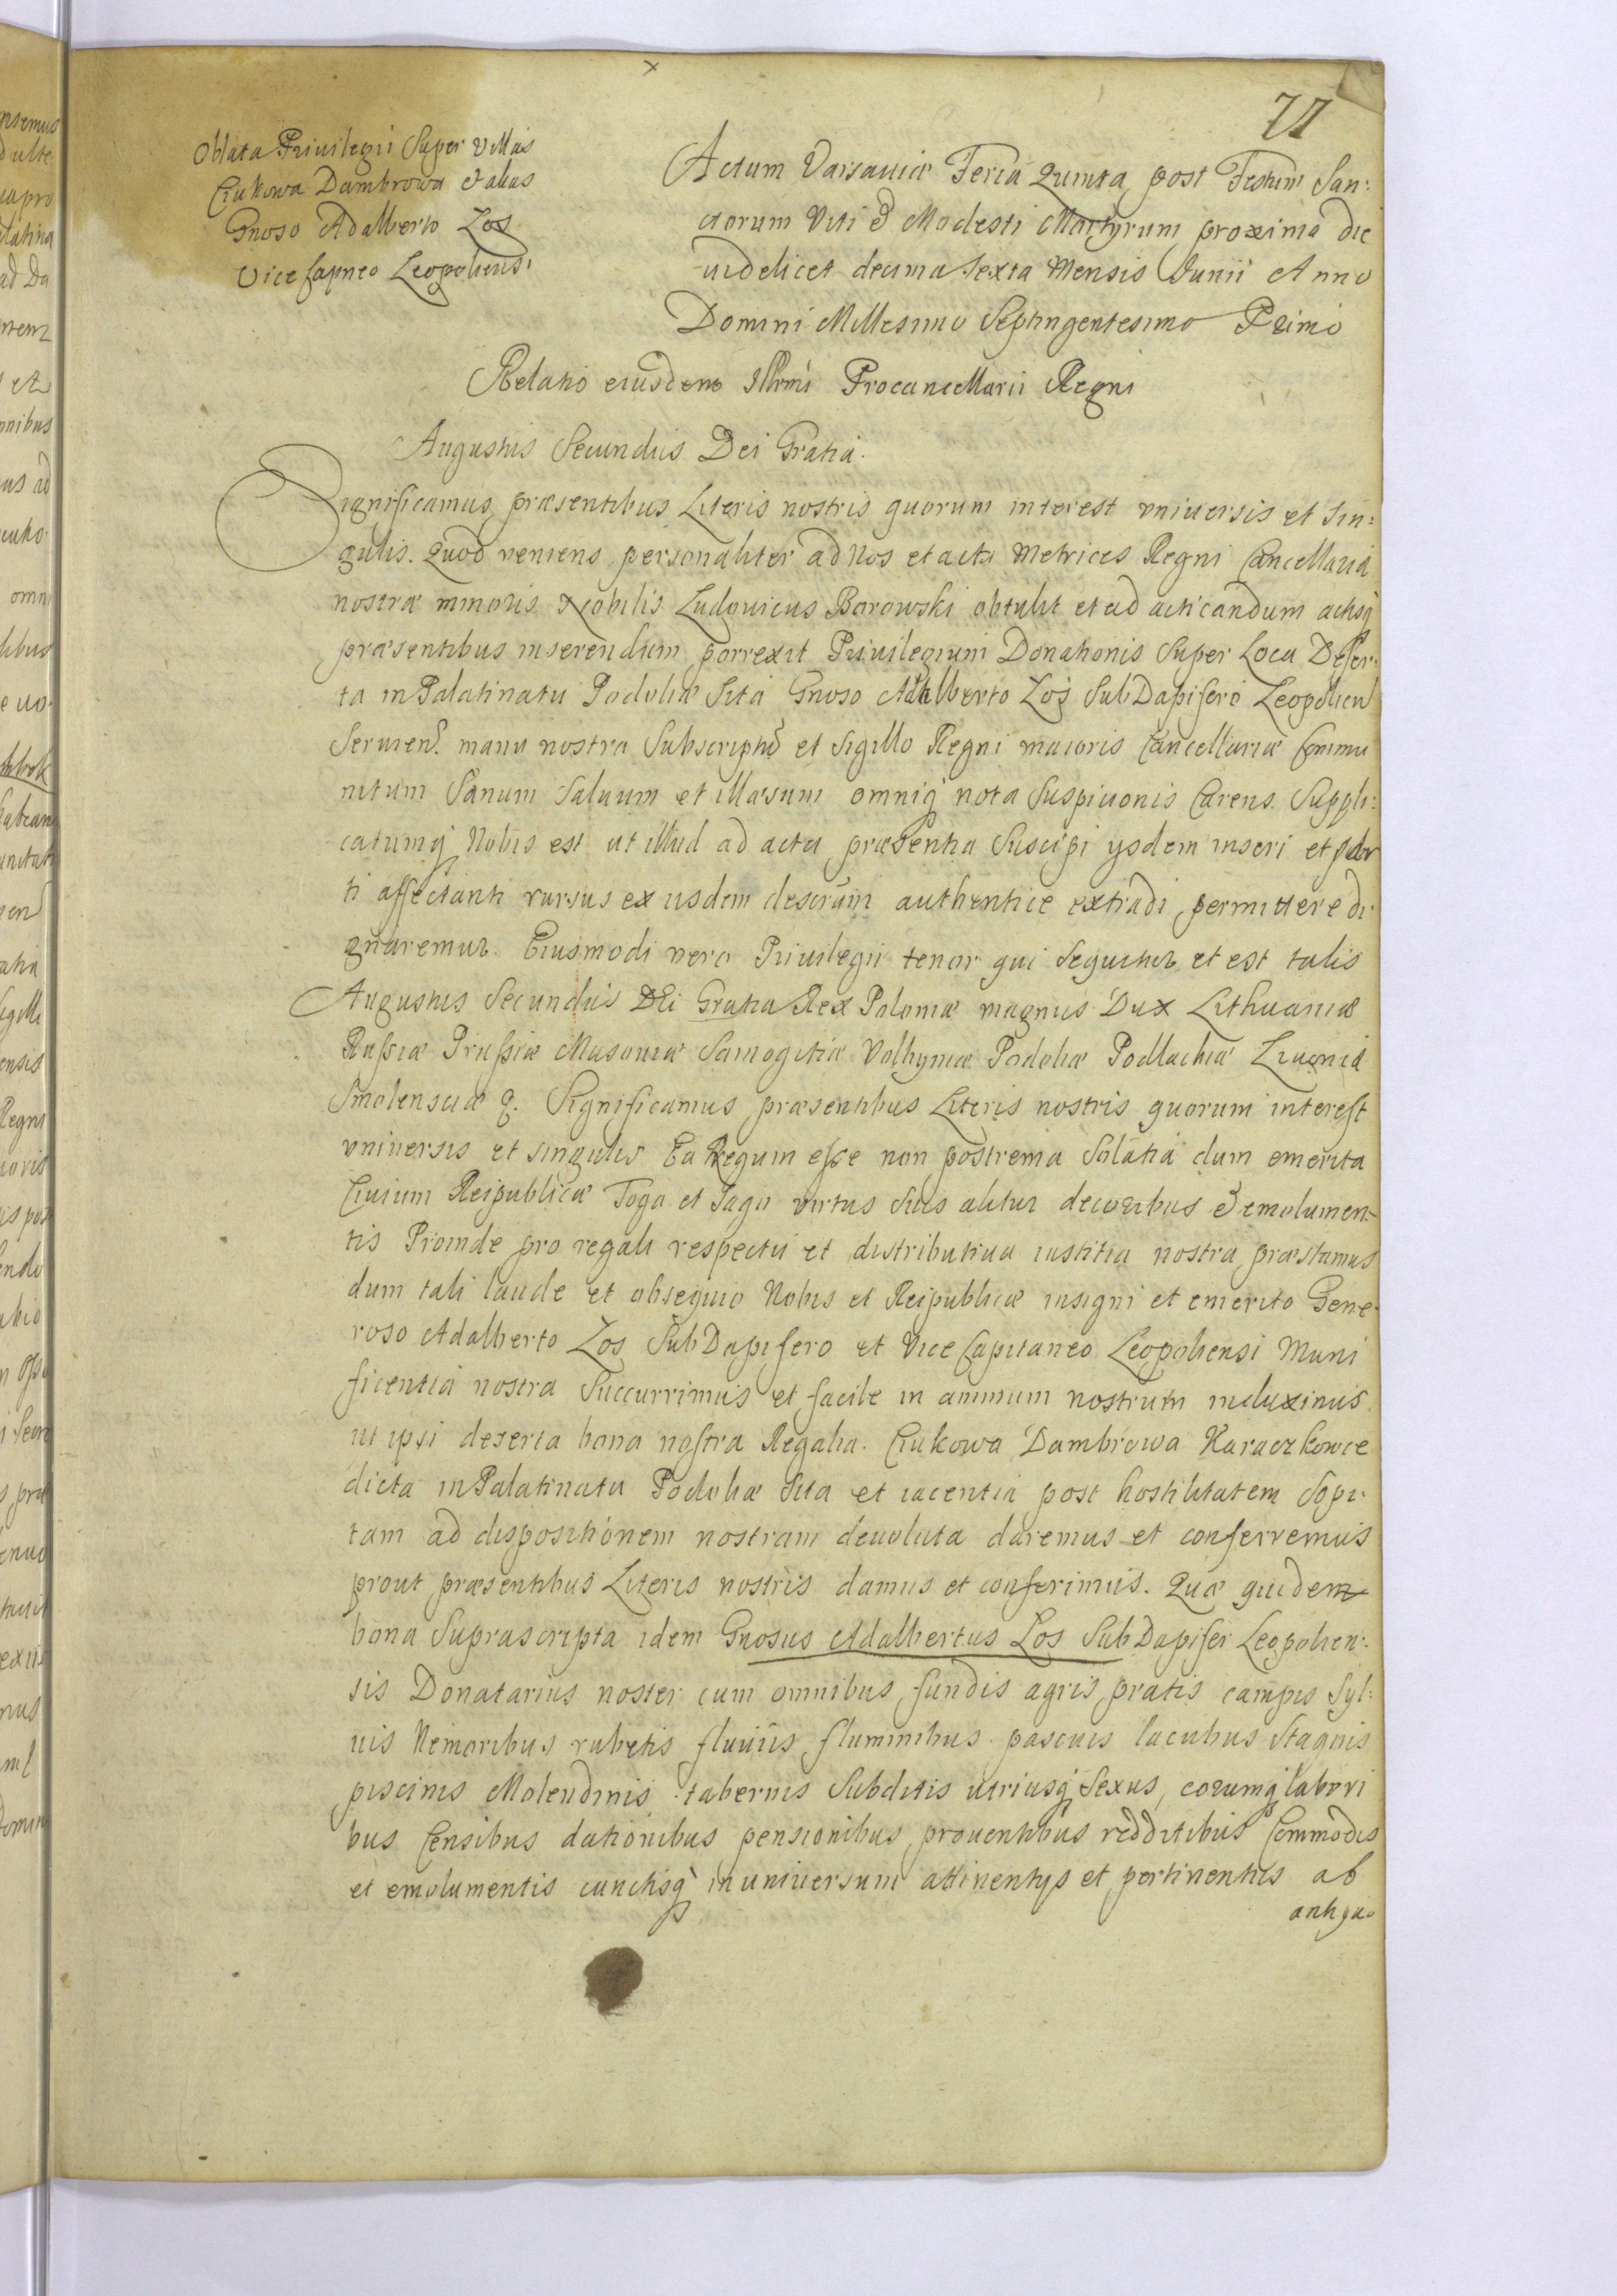 71
Oblata Priuilegii Super Villas
Czukowa Dambrowa & alias
Gnoso Adalberto Łos
Vice Capneo Leopoliensi
Actum Varsauiæ Feria Quinta post Festum San:
ctorum Viti & Modesti Martyrum proxima die
uidelicet decima Sexta Mensis Junii Anno
Domini Millesimo Septingentesimo Primo
Relatio eiusdem Illrmi Procancellarii Regni
Augustus Secundus Dei Gratia.
Significamus præsentibus Literis nostris quorum interest vniuersis et sin:
gulis. Quod veniens personaliter ad Nos et acta Metrices Regni Cancellariæ
nostræ minoris Nobilis Ludouicus Borowski obtulit et ad acticandum actisq
præsentibus inserendum porrexit Priuilegium Donationis Super Loca Deser:
ta in Palatinatu Podoliæ Sita Gnoso Adalberto Łoś SubDapifero Leopolien
Seruien. manu nostra Subscriptu et Sigillo Regni maioris Cancellariæ Commu
nitum Sanum Saluum et illæsum omniq nota Suspicionis Carens. Suppli:
catumq Nobis est ut illud ad acta præsentia Suscipi ysdem inseri et par
ti affectanti rursus ex iisdem descrium authentice extradi permittere di
gnaremur. Eiusmodi vero Priuilegii tenor qui Sequitur et est talis
Augustus Secundus DEi Gratia Rex Poloniæ magnus Dux Lithuaniæ
Russiæ Prussiæ Masouiæ Samogitiæ Volhyniæ Podoliæ Podlachiæ Liuoniæ
Smolensciæ &. Significamus præsentibus Literis nostris quorum interest
vniuersis et singulis Ea Regum esse non postrema Solatia dum emerita
Ciuium Reipublicæ Toga et Sago virtus Suis alitur decoribus & emolumen-
tis Proinde pro regali respectu et distributiua iustitia nostra præstamus
dum tali laude et obsequio Nobis et Reipublicæ insigni et emerito Gene-
roso Adalberto Łos SubDapifero et Vice Capitaneo Leopoliensi Muni
ficentia nostra Succurrimus et facile in animum nostrum induximus
ut ipsi deserta bona nostra Regalia. Czukowa Dambrowa Karaczkowce
dicta in Palatinatu Podoliæ Sita et iacentia post hostilitatem Sopi-
tam ad dispositionem nostram deuoluta daremus et conferremus
prout præsentibus Literis nostris damus et conferimus. Quæ quidem
bona Suprascripta idem Gnosus Adalbertus Łos SubDapifer Leopolien:
sis Donatarius noster cum omnibus fundis agris pratis campis Syl:
uis Nemoribus rubetis fluuiis fluminibus pascuis lacubus Stagnis
piscinis Molendinis tabernis Subditis utriusq Sexus, eorumq labori
bus Censibus dationibus pensionibus prouentibus redditibus Commodis
et emolumentis cunctisq in uniuersum attinentys et pertinentiis ab
antiquo